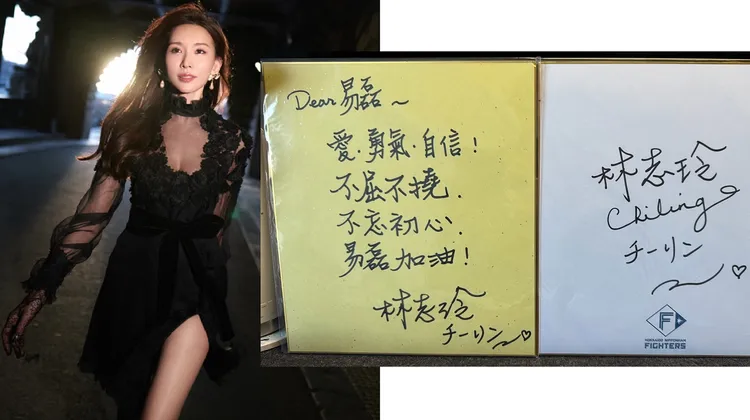 Dear 易磊~
愛.勇氣.自信!
不屈不撓.
不忘初心.
易磊加油!
林志玲
チーリン
林志玲
Chiling
チーリン
F
HOKKAIDO NIPPONHAM
FIGHTERS